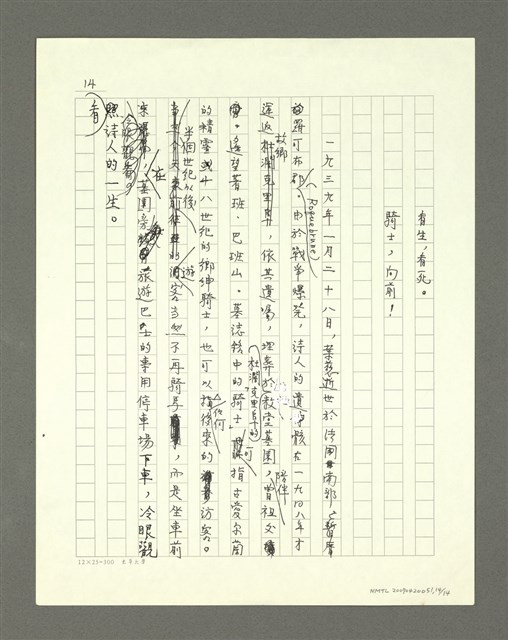 14
看生,看死。
騎士,向前!
一九三九年一月二十八日,葉慈逝世於法國南部,暫厝
羅可布郡(Roquebrune)。由於戰爭爆發,詩人的遺骸在一九四八年才
運返故鄉,依其遺囑,埋葬於杜蘭克里夫的教堂墓園,陪伴曾祖父
。遙望著班‧巴班山。墓誌銘中的「騎士」可指古愛爾蘭
的精靈或十八世紀的鄉紳騎士,也可以指任何後來的訪客。
半個世紀以後的遊客當然不再騎馬,而是坐車前
來,在墓園旁旅遊巴士的專用停車場下車,冷眼觀
看
詩人的一生。
12×25=300 東華大學
NMTL 20090420051,14/14